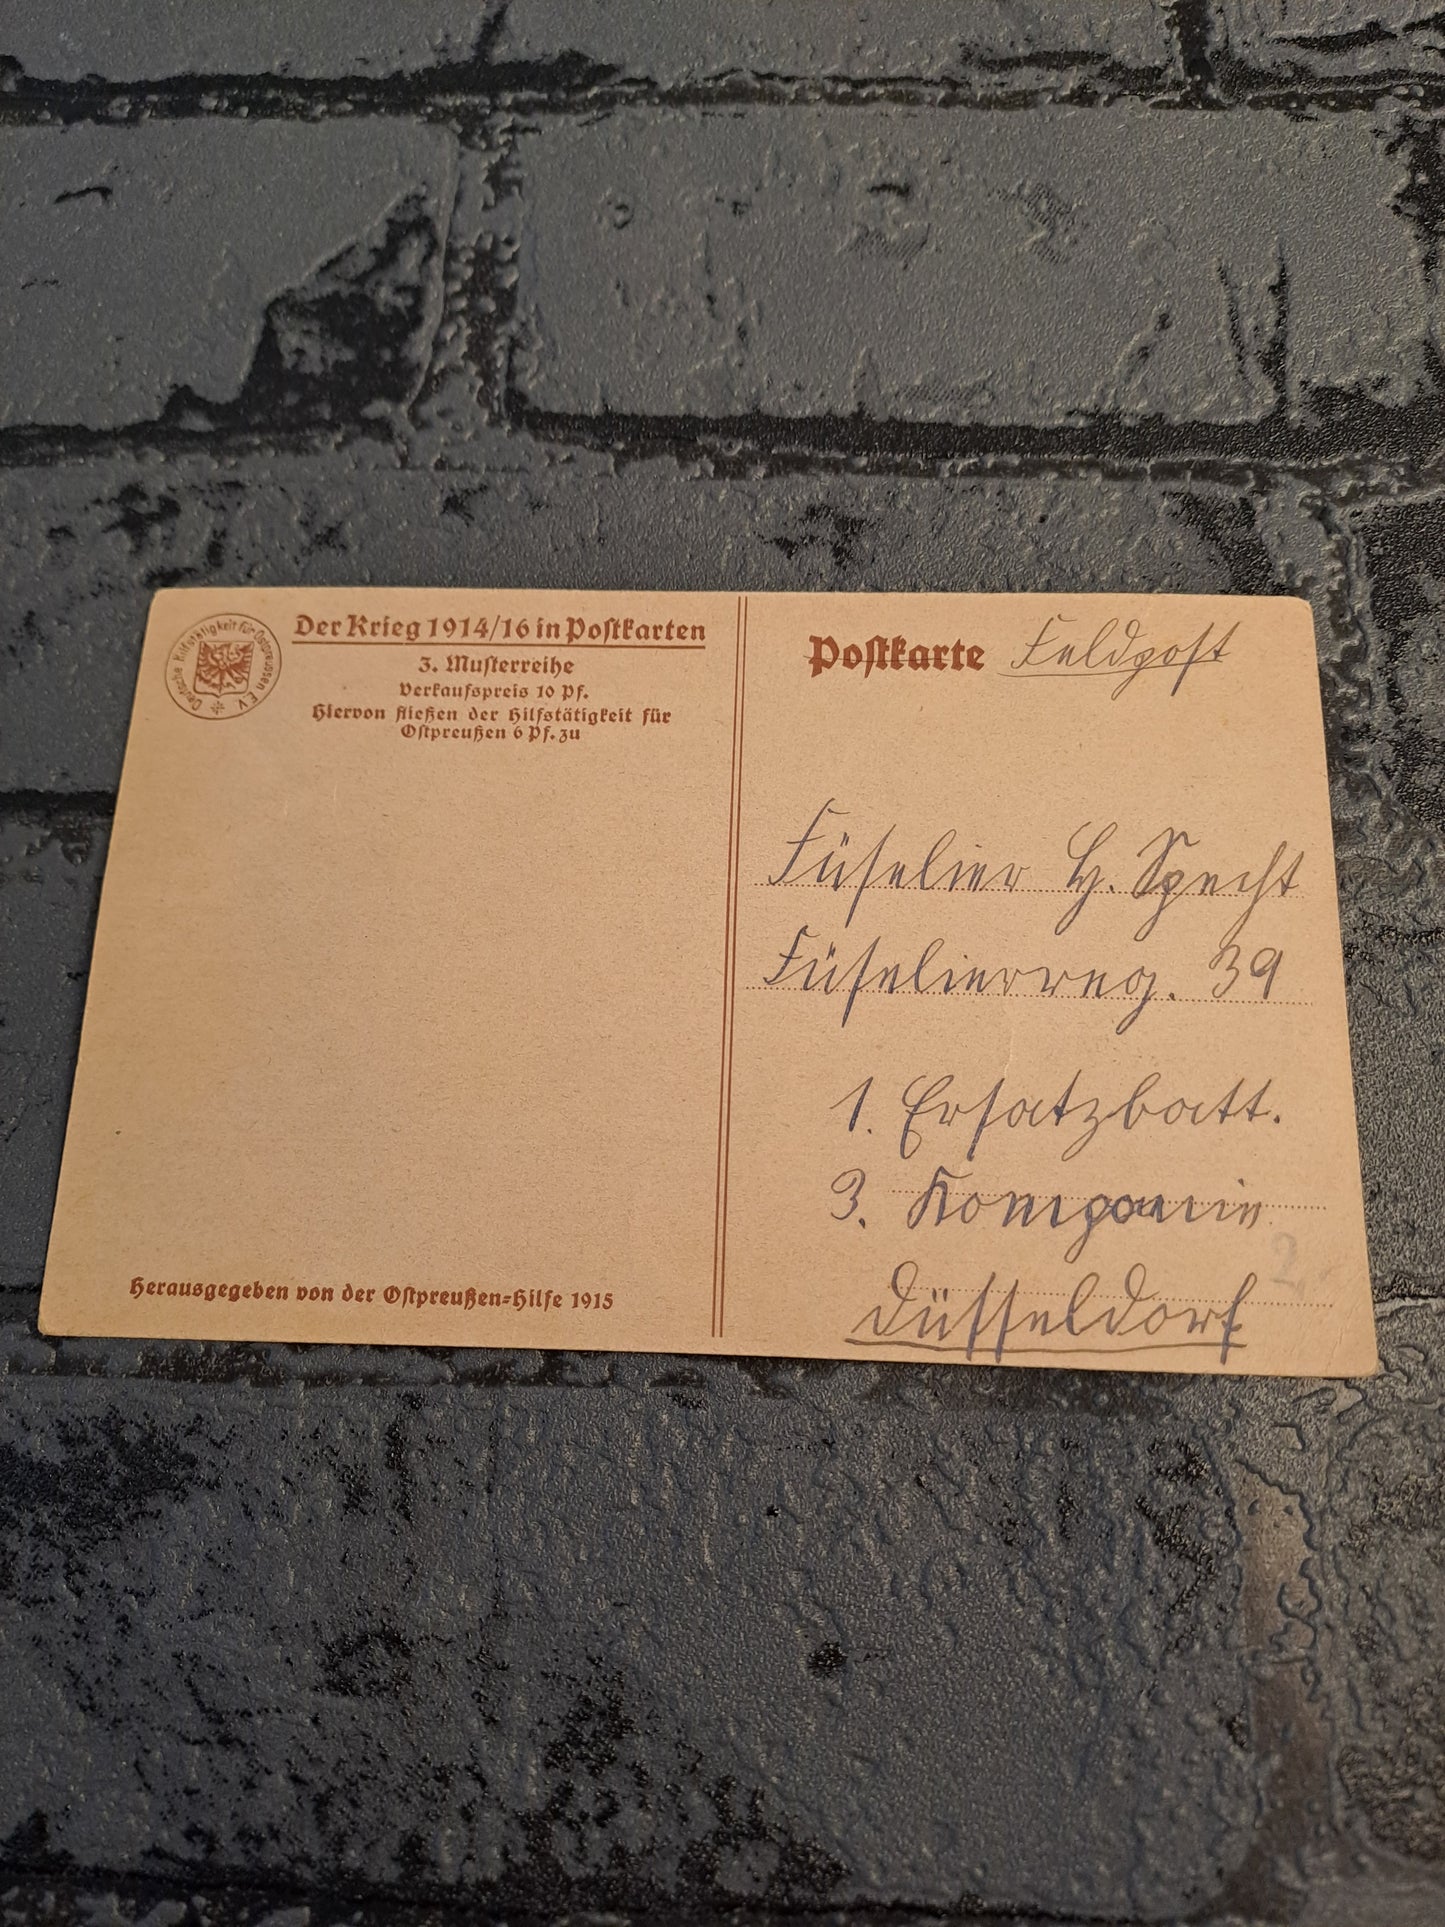 Deutsche Hilfstätigkeit für Ostpreussen E.V.
Der Krieg 1914/16 in Postkarten
3. Musterreihe
Verkaufspreis 10 Pf.
Hiervon fließen der Hilfstätigkeit für
Ostpreußen 6 Pf. zu
Herausgegeben von der Ostpreußen-Hilfe 1915
Postkarte Feldpost
Füselier H. Specht
Füselierreg. 39
1. Ersatzbatt.
3. Kompanie
2
Düsseldorf